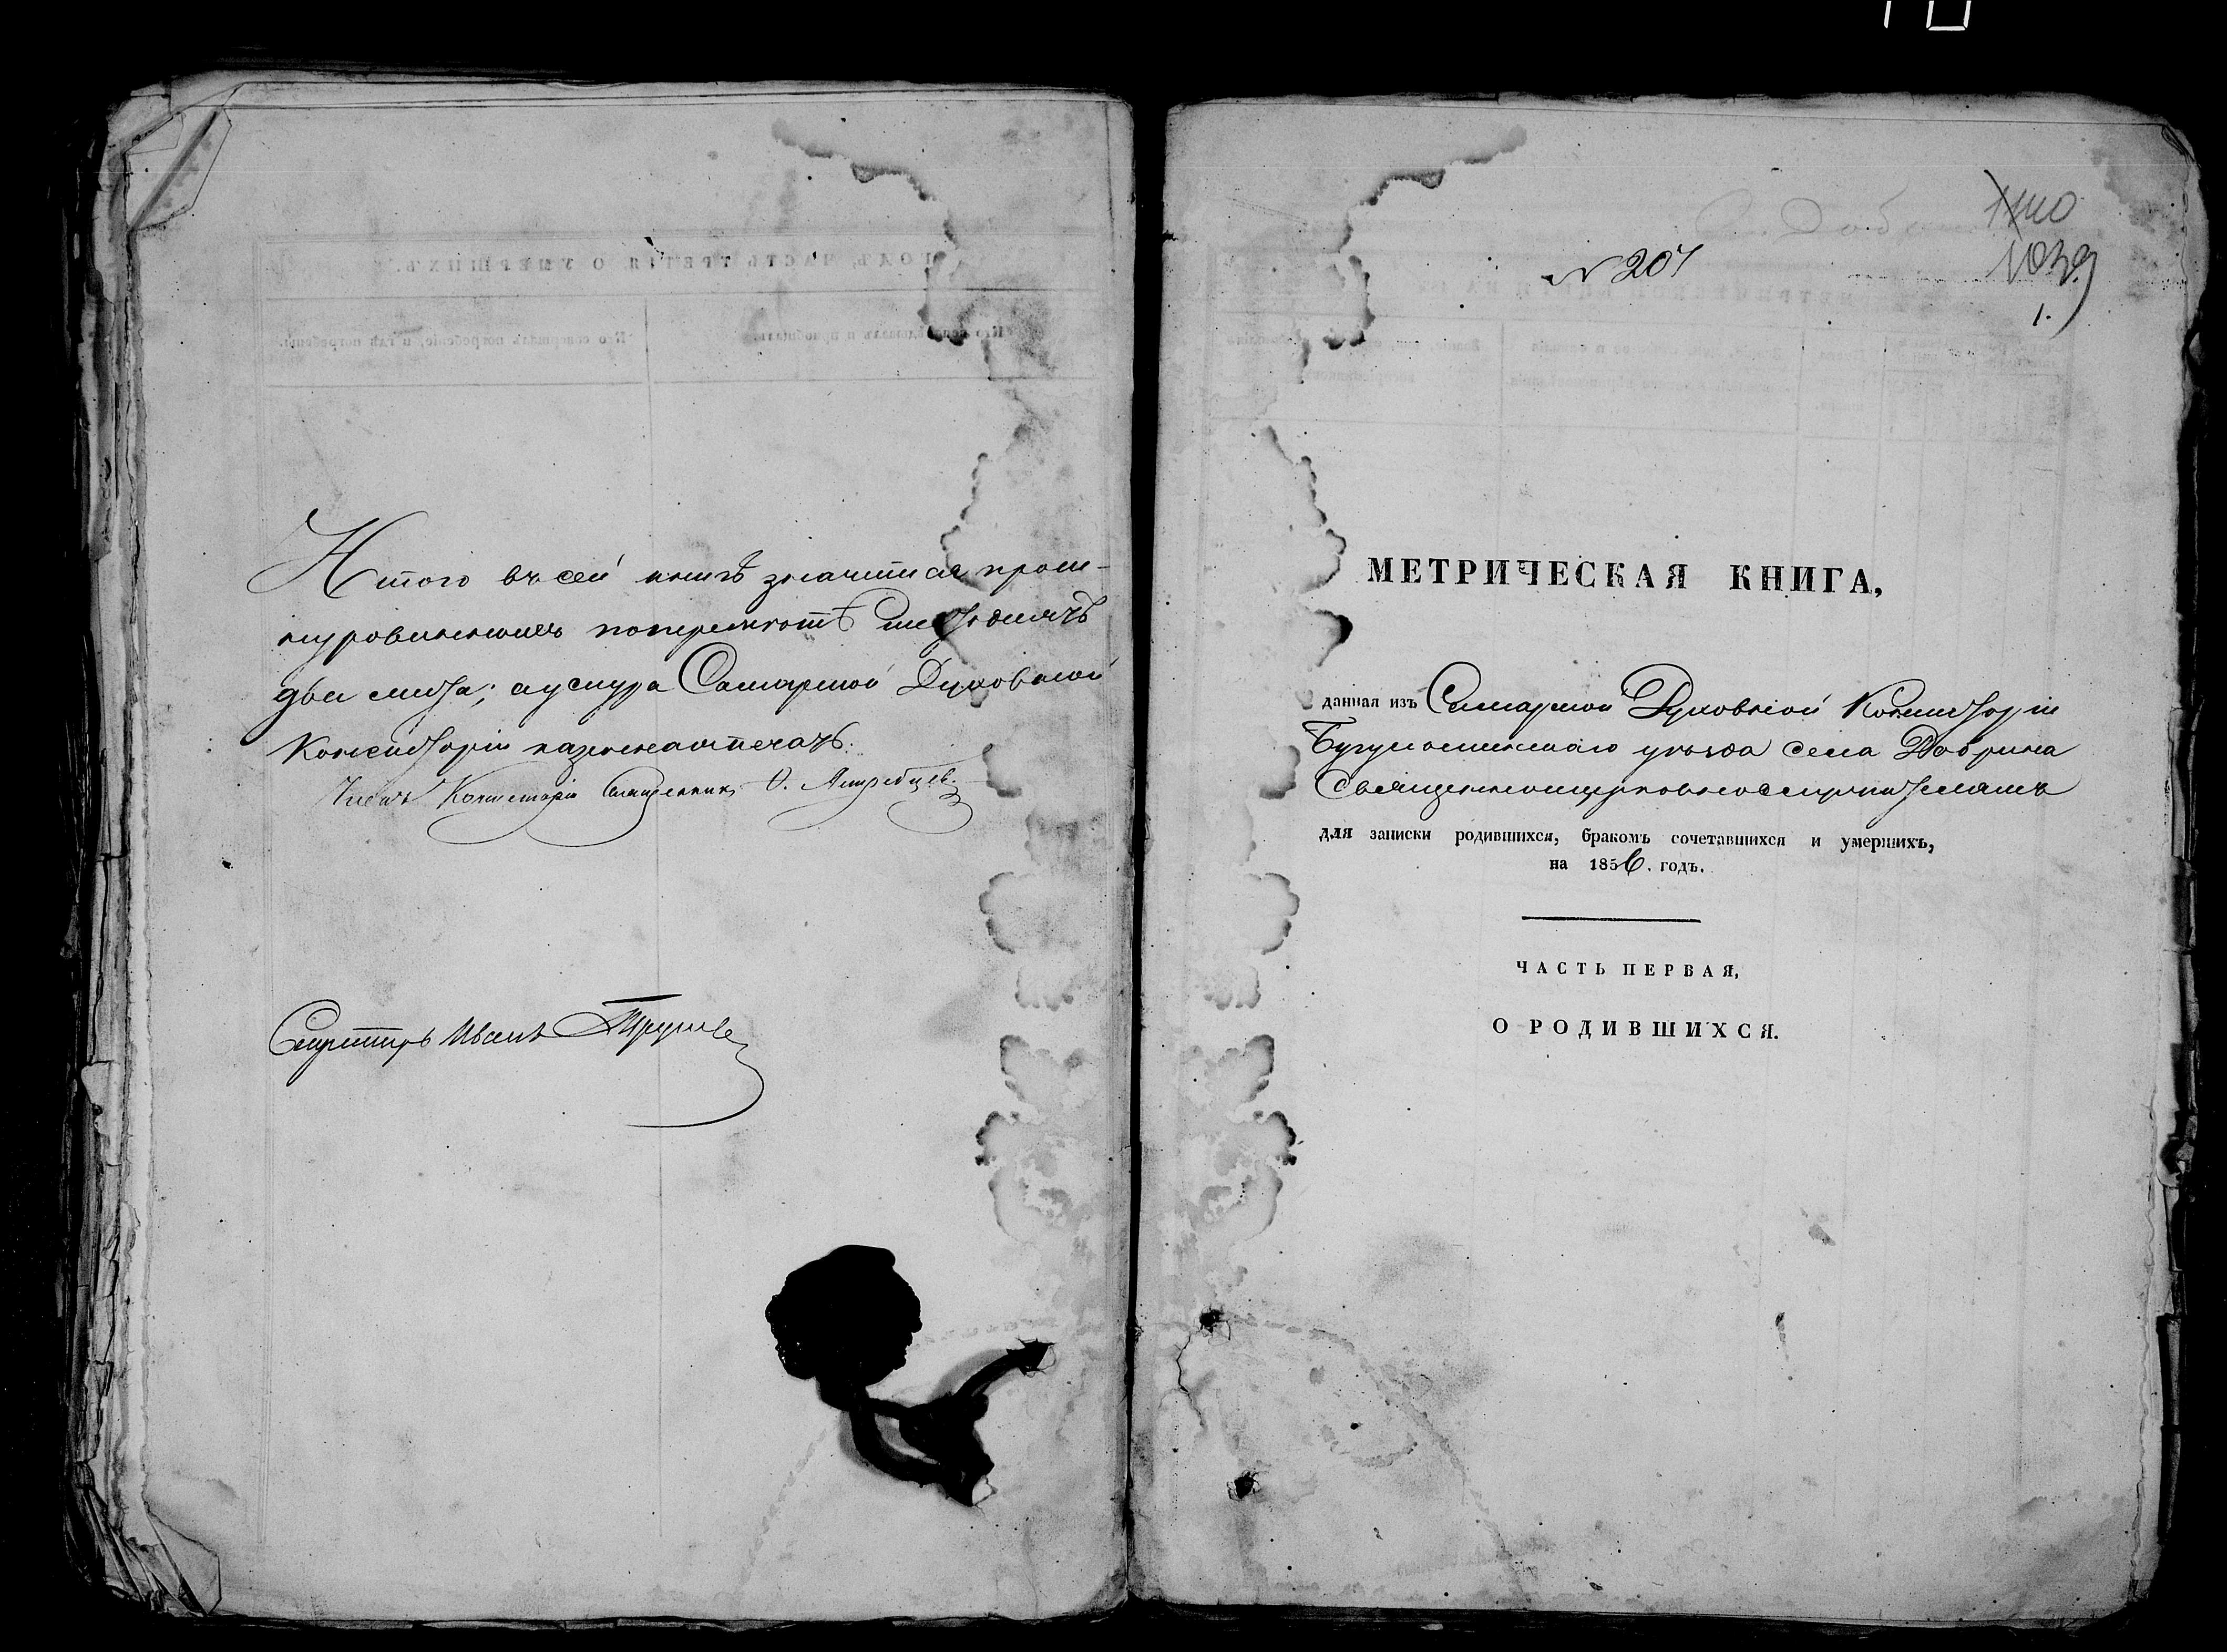 Итого въ сей книгѣ значится прош-
нурованныхъ
два листа; а у снура Самарской Духовной
Консисторіи казенная печать.
Членъ Консисторіи Священникъ
Секретарь Иванъ
№ 207
1110
1039
1.
МЕТРИЧЕСКАЯ КНИГА,
данная изъ Самарской Духовной Консисторіи
Бугульминскаго уѣзда села Добрина
Священноцерковнослужителямъ
для записки родившихся, бракомъ сочетавшихся и умершихъ,
на 1856. годъ.
ЧАСТЬ ПЕРВАЯ,
О РОДИВШИХСЯ.